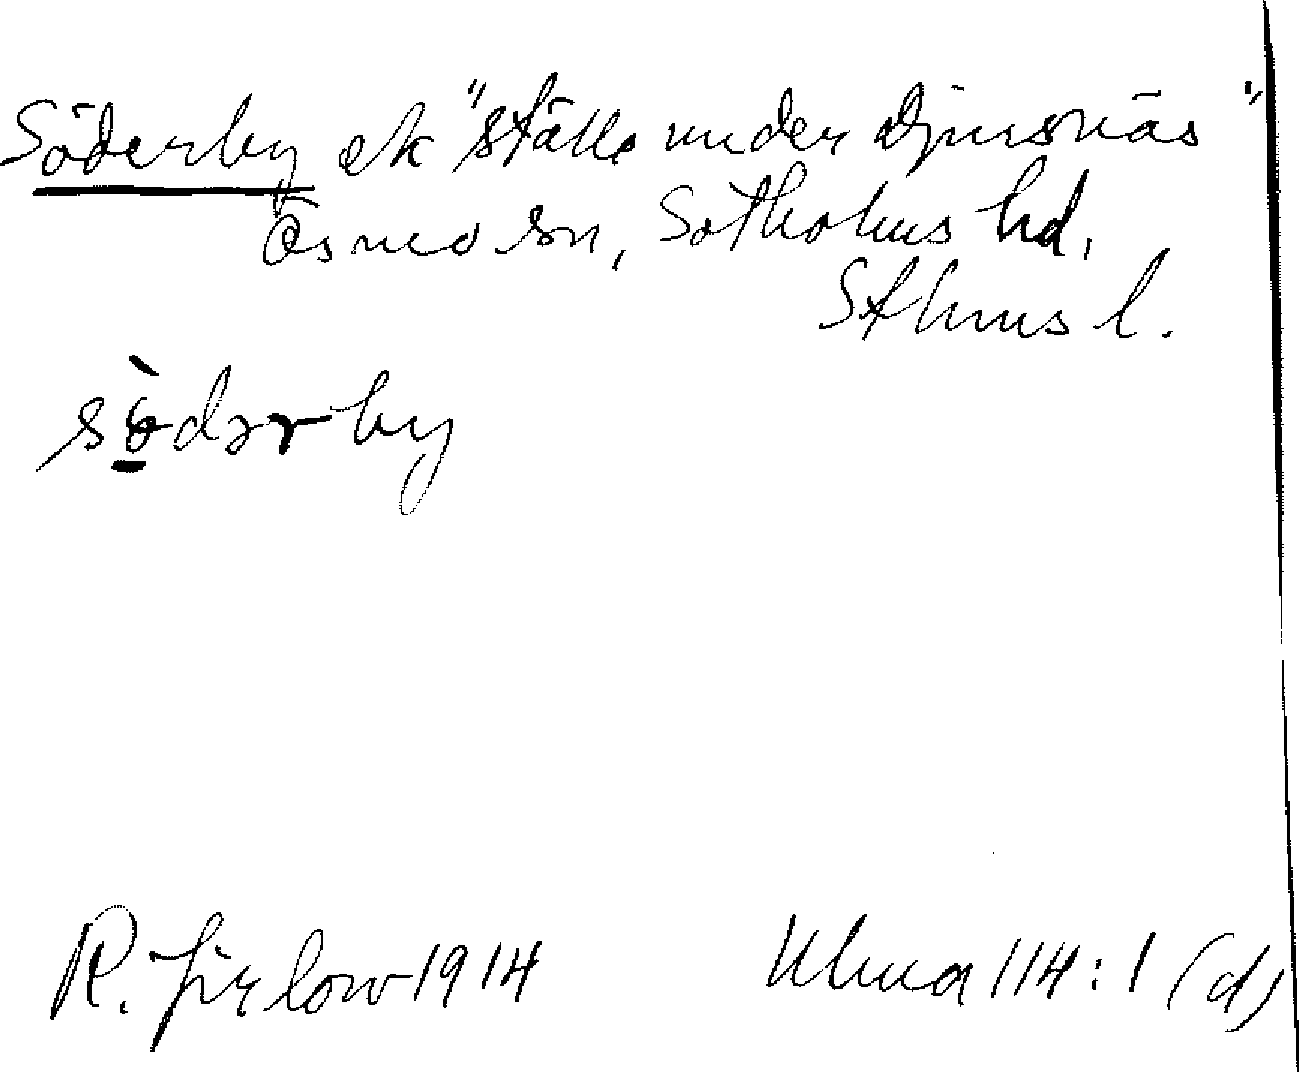 Söderby ek "ställe under Djursnäs"
Ösmo sn, Sotholms hd,
Sthms l.
sö̀dərby
R. Jirlow 1914
Ulma 114:1 (d)